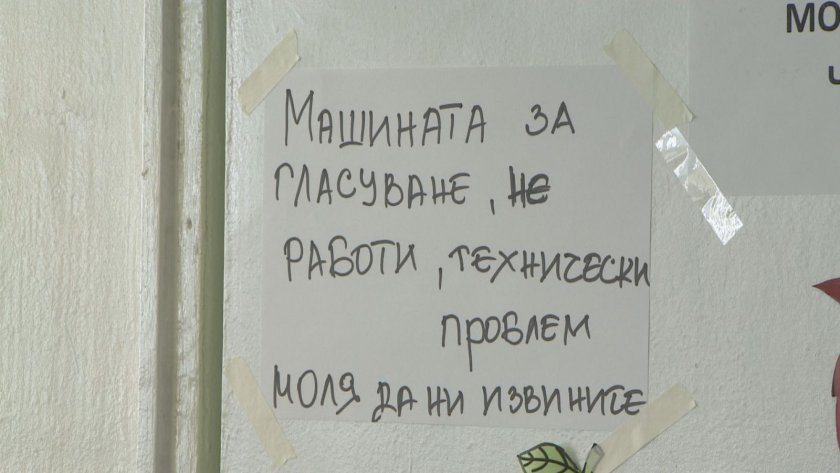 МАШИНАТА ЗА
ГЛАСУВАНЕ, НЕ
РАБОТИ, ТЕХНИЧЕСКИ
ПРОБЛЕМ
МОЛЯ ДА НИ ИЗВИНИТЕ
МО